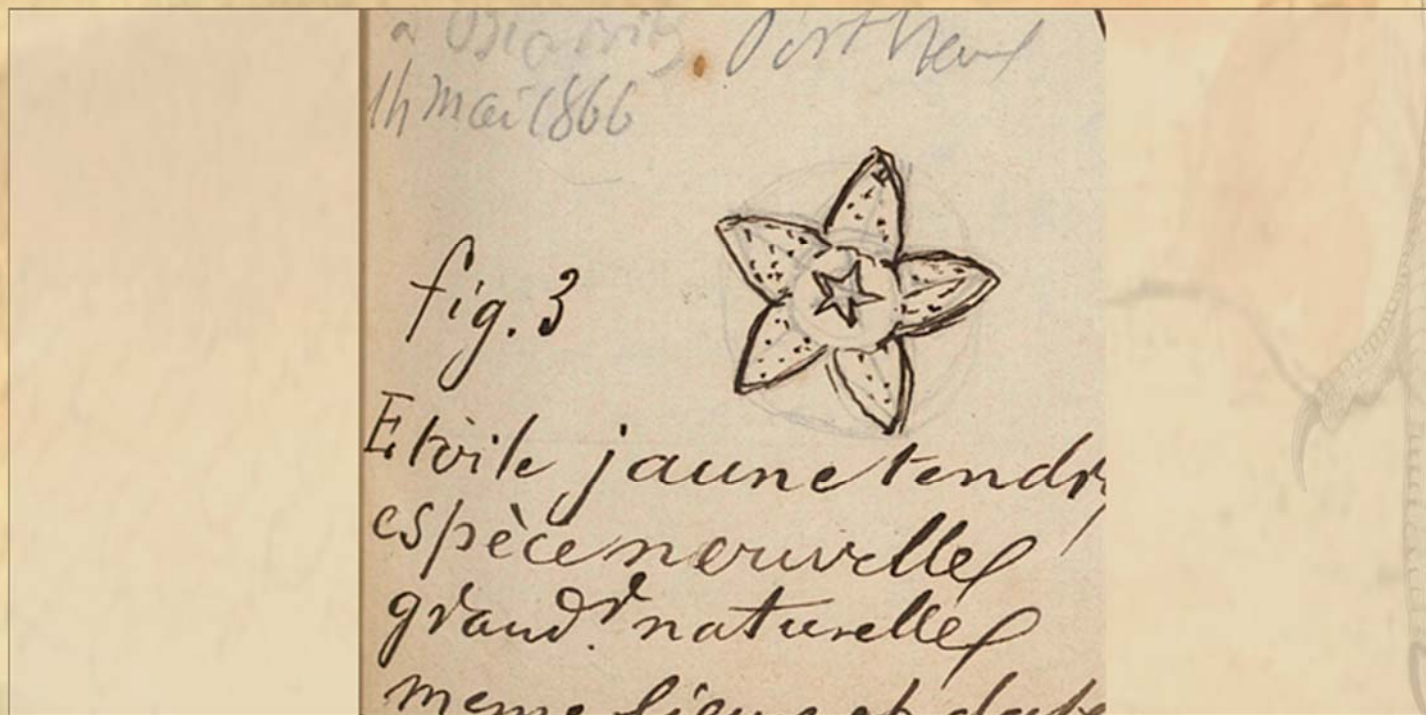 a Biarritz. Port Vieux
14 mai 1866
fig. 3
Etoile jaune tendre,
espèce nouvelle
grand.r naturelle
meme lieu et date